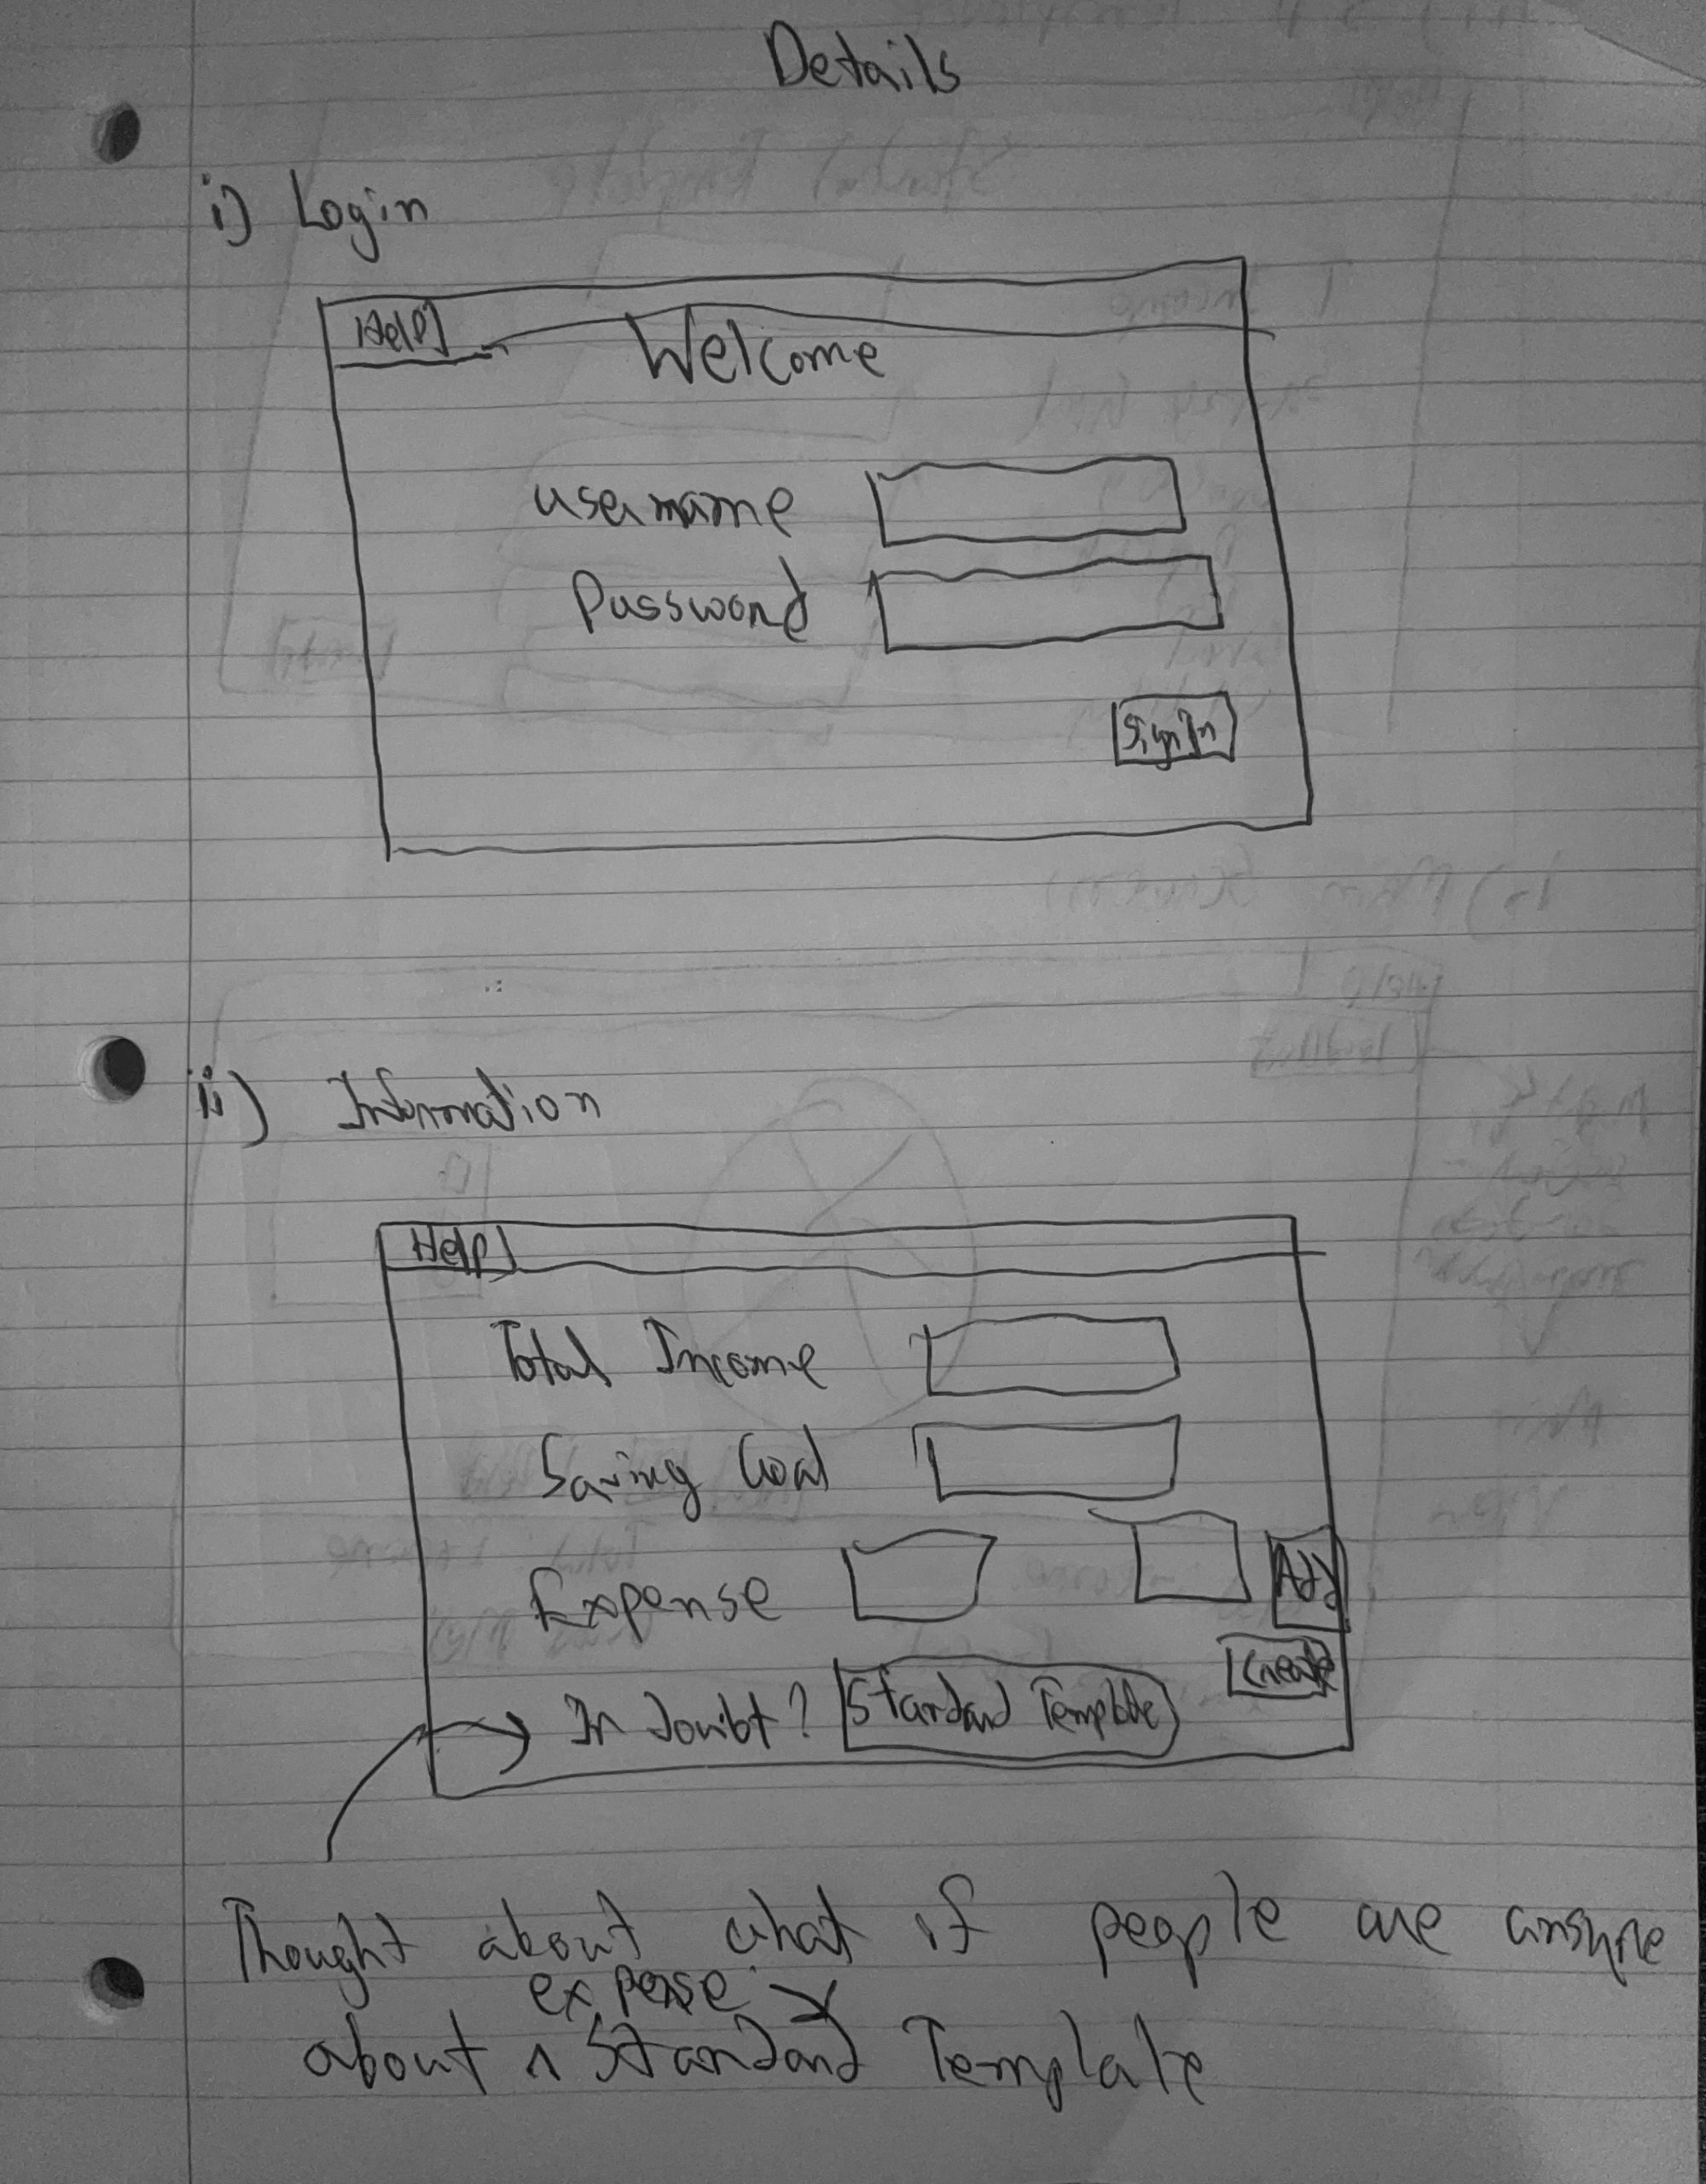 Details
i) Login
Help
Welcome
username
Password
Sign In
ii) Information
Help
Total Income
Saving Goal
Expense
Add
Create
In doubt? Standard Template
Thought about what if people are unsure
expense →
about ^ Standard Template